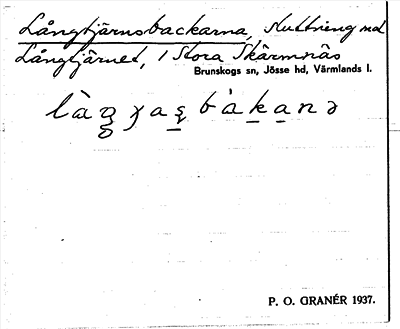 Långtjärnsbackarna, sluttning md
Långtjärnet, i Stora Skärmnäs
Brunskogs sn, Jösse hd, Värmlands l.
P. O. GRANÉR 1937.